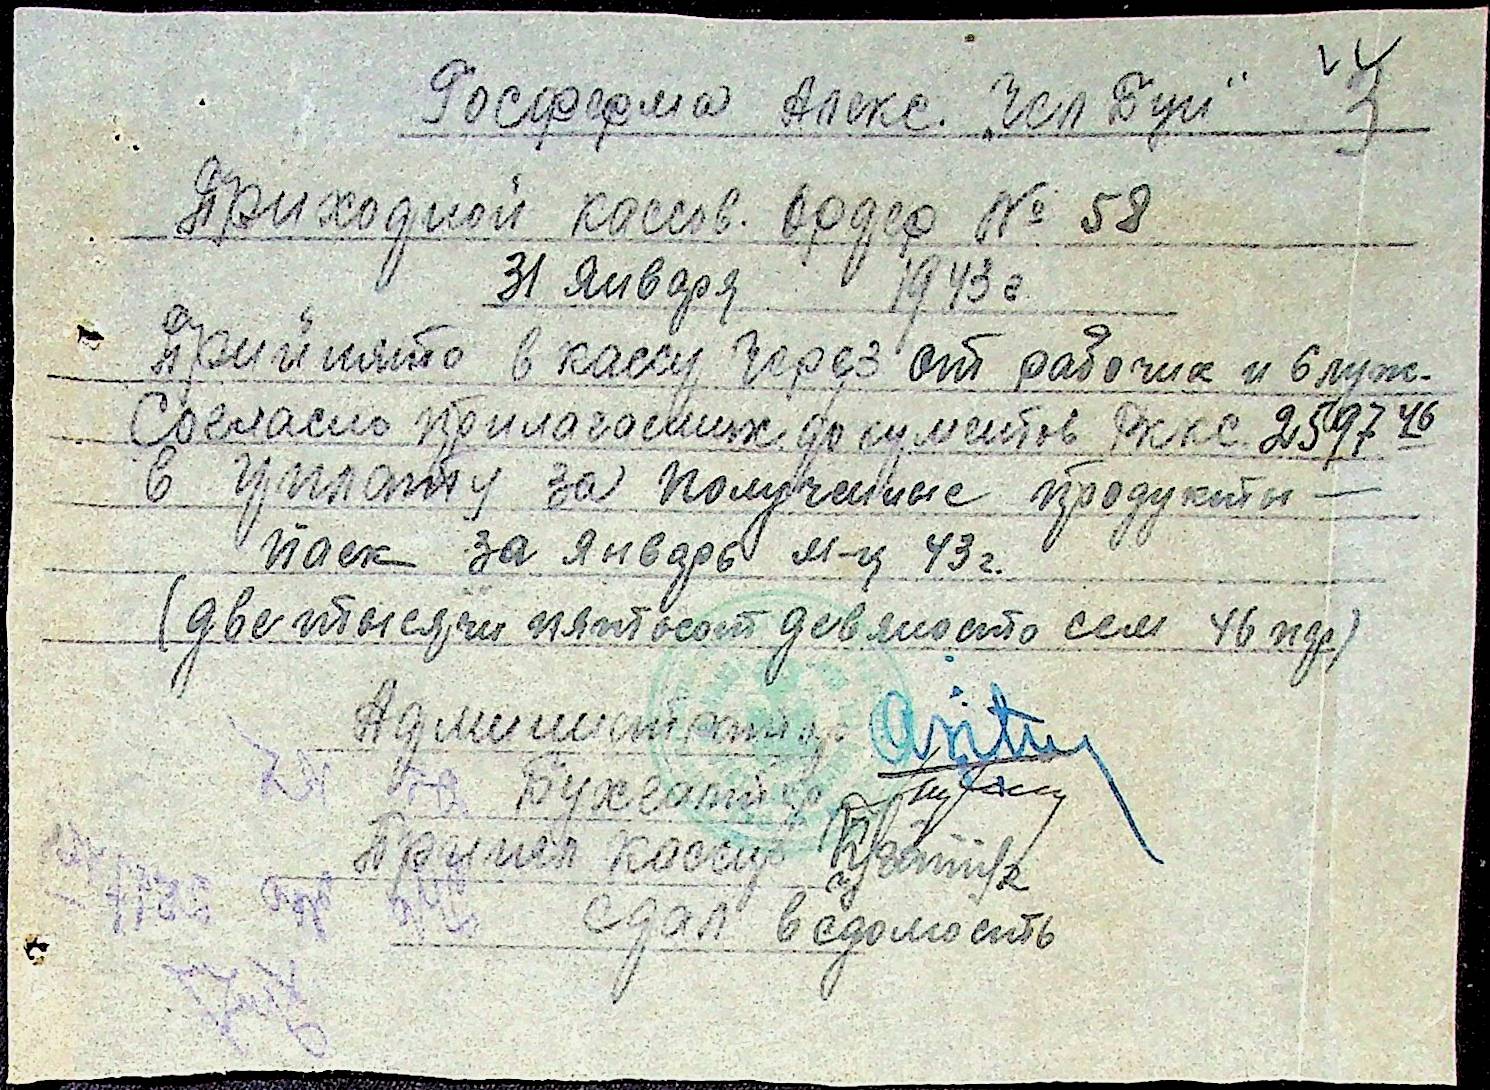 Госферма Алекс. 3
Приходной кассов. Ордер № 58
31 Января 1943 г
Прийнято в кассу Через от рабочих и служ.
Согласно прилагаемых документов 2597 46
В уплату за полученные продукты —
паек за Январь м-ц 43 г.
(две тысячи пятьсот девяносто сем 46)
Администратор
Бухгалтер
Принял кассир
Сдал ведомость